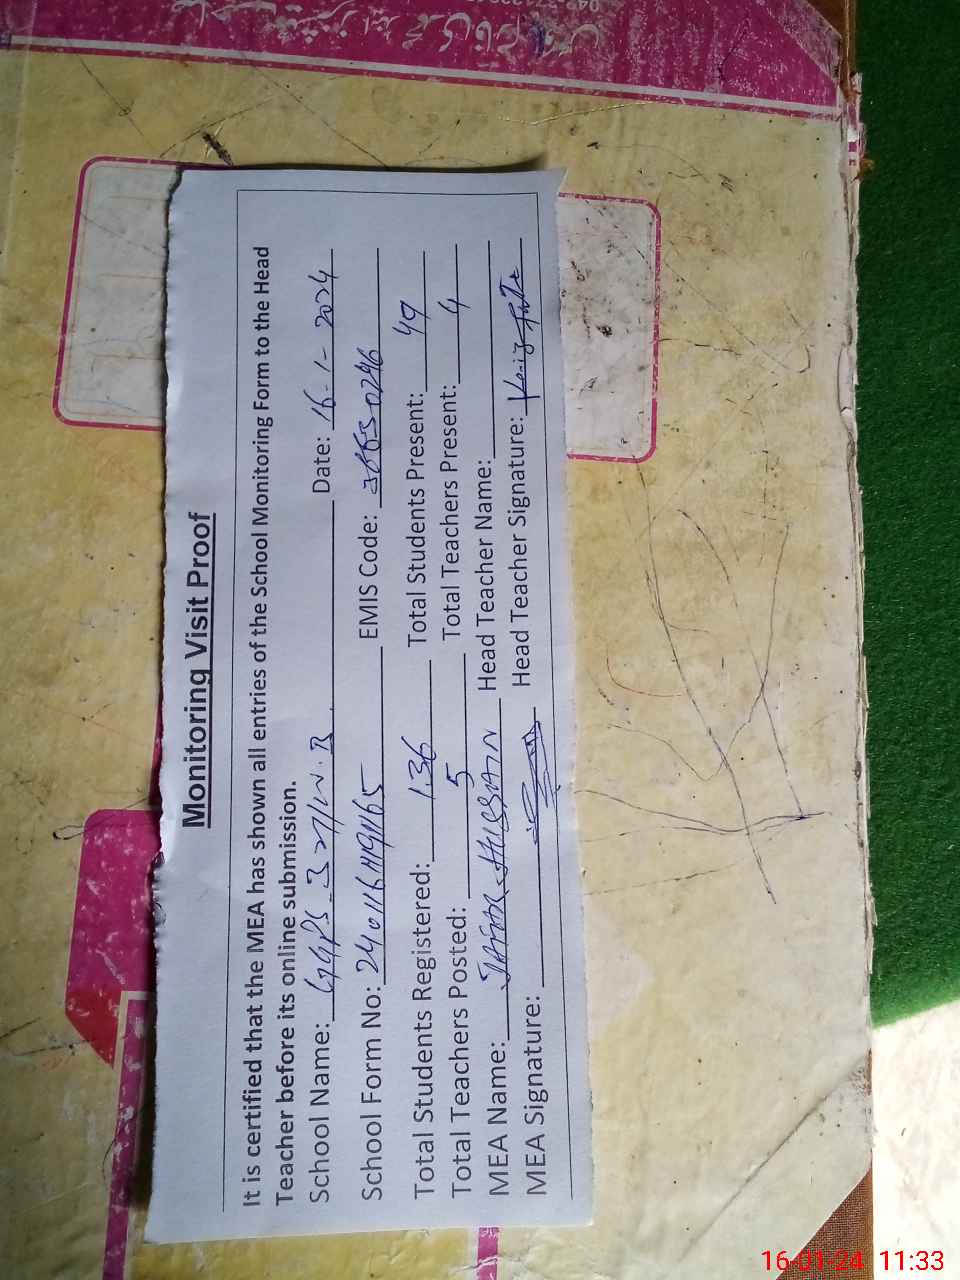 Monitoring Visit Proof
It is certified that the MEA has shown all entries of the School Monitoring Form to the Head
Teacher before its online submission.
School Name: GGPS 327/W.B Date: 16-1-2024
School Form No: 240116M91165 EMIS Code:
Total Students Registered: 136 Total Students Present: 49
Total Teachers Posted: 5 Total Teachers Present: 4
MEA Name: JAFAR HUSSAIN Head Teacher Name:
MEA Signature: Head Teacher Signature:
16-01-24 11:33